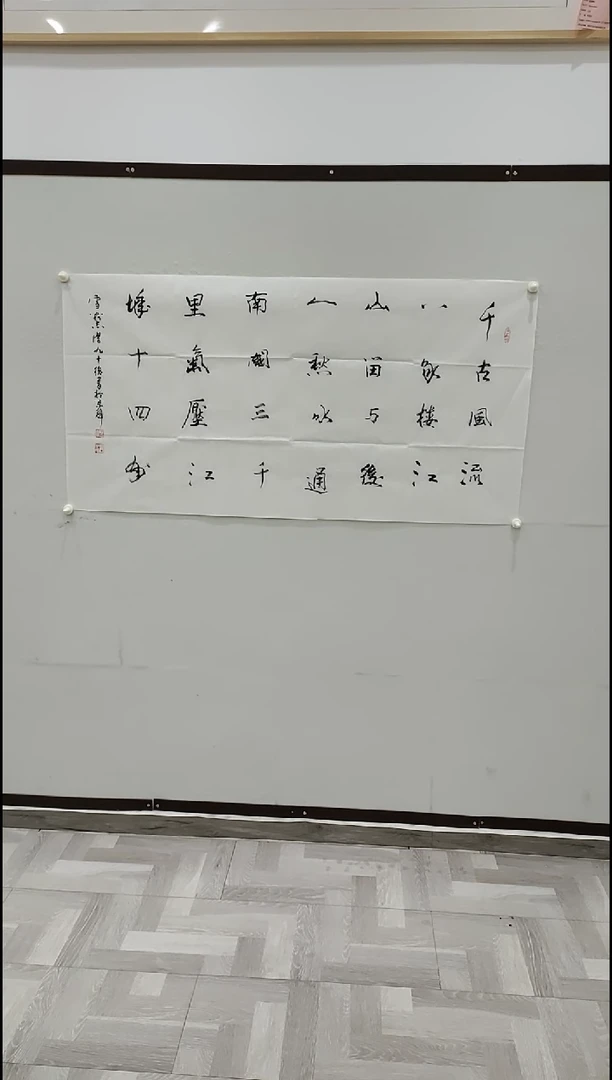 千古風流
八詠楼江
山留与後
人愁水通
南國三千
里氣壓江
城十四州